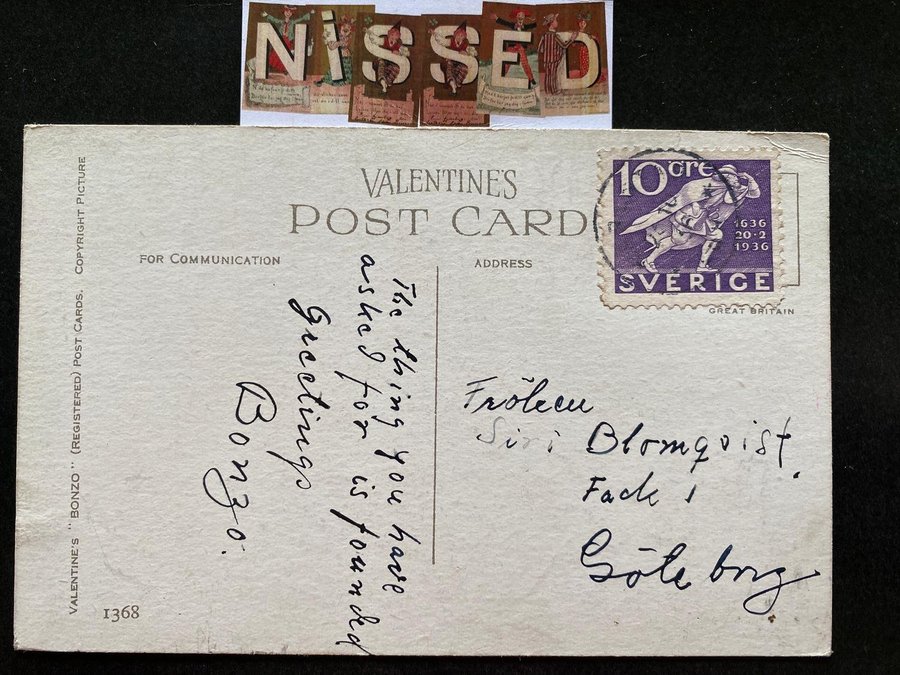 NISSED
VALENTINE'S
POST CARD
FOR COMMUNICATION
ADDRESS
10 öre
1636
20·2
1936
SVERIGE
GREAT BRITAIN
VALENTINE'S "BONZO" (REGISTERED) POST CARDS. COPYRIGHT PICTURE
The thing you have
asked for is founded
Greetings
Bonzo.
Fröken
Siri Blomqvist.
Fack 1
Göteborg
1368